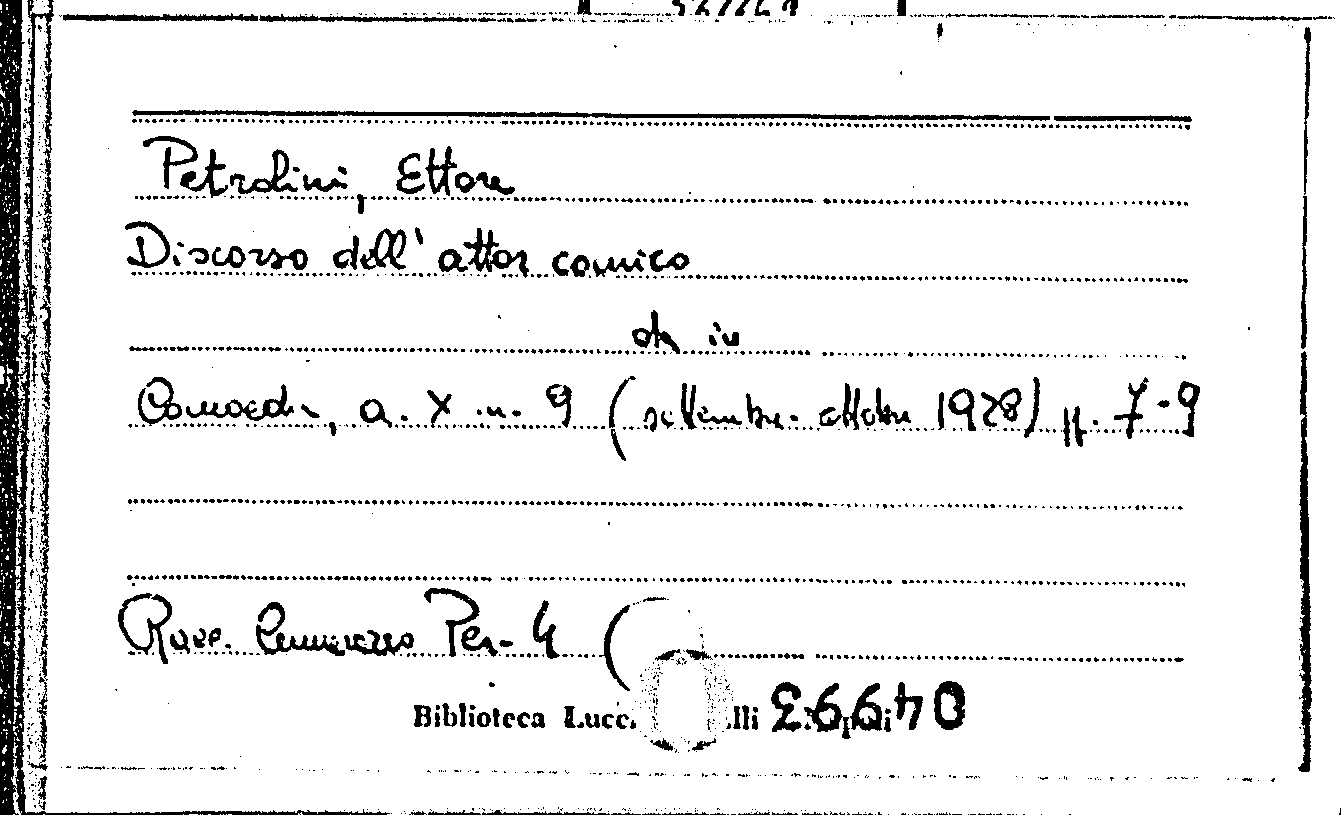 Petrolini, Ettore
Discorso dell'attor comico
da in
Comoedia, a. X n. 9 (settembre-ottobre 1928) pp. 7-9
Racc. Per. 4 (
Biblioteca Lucc. lli